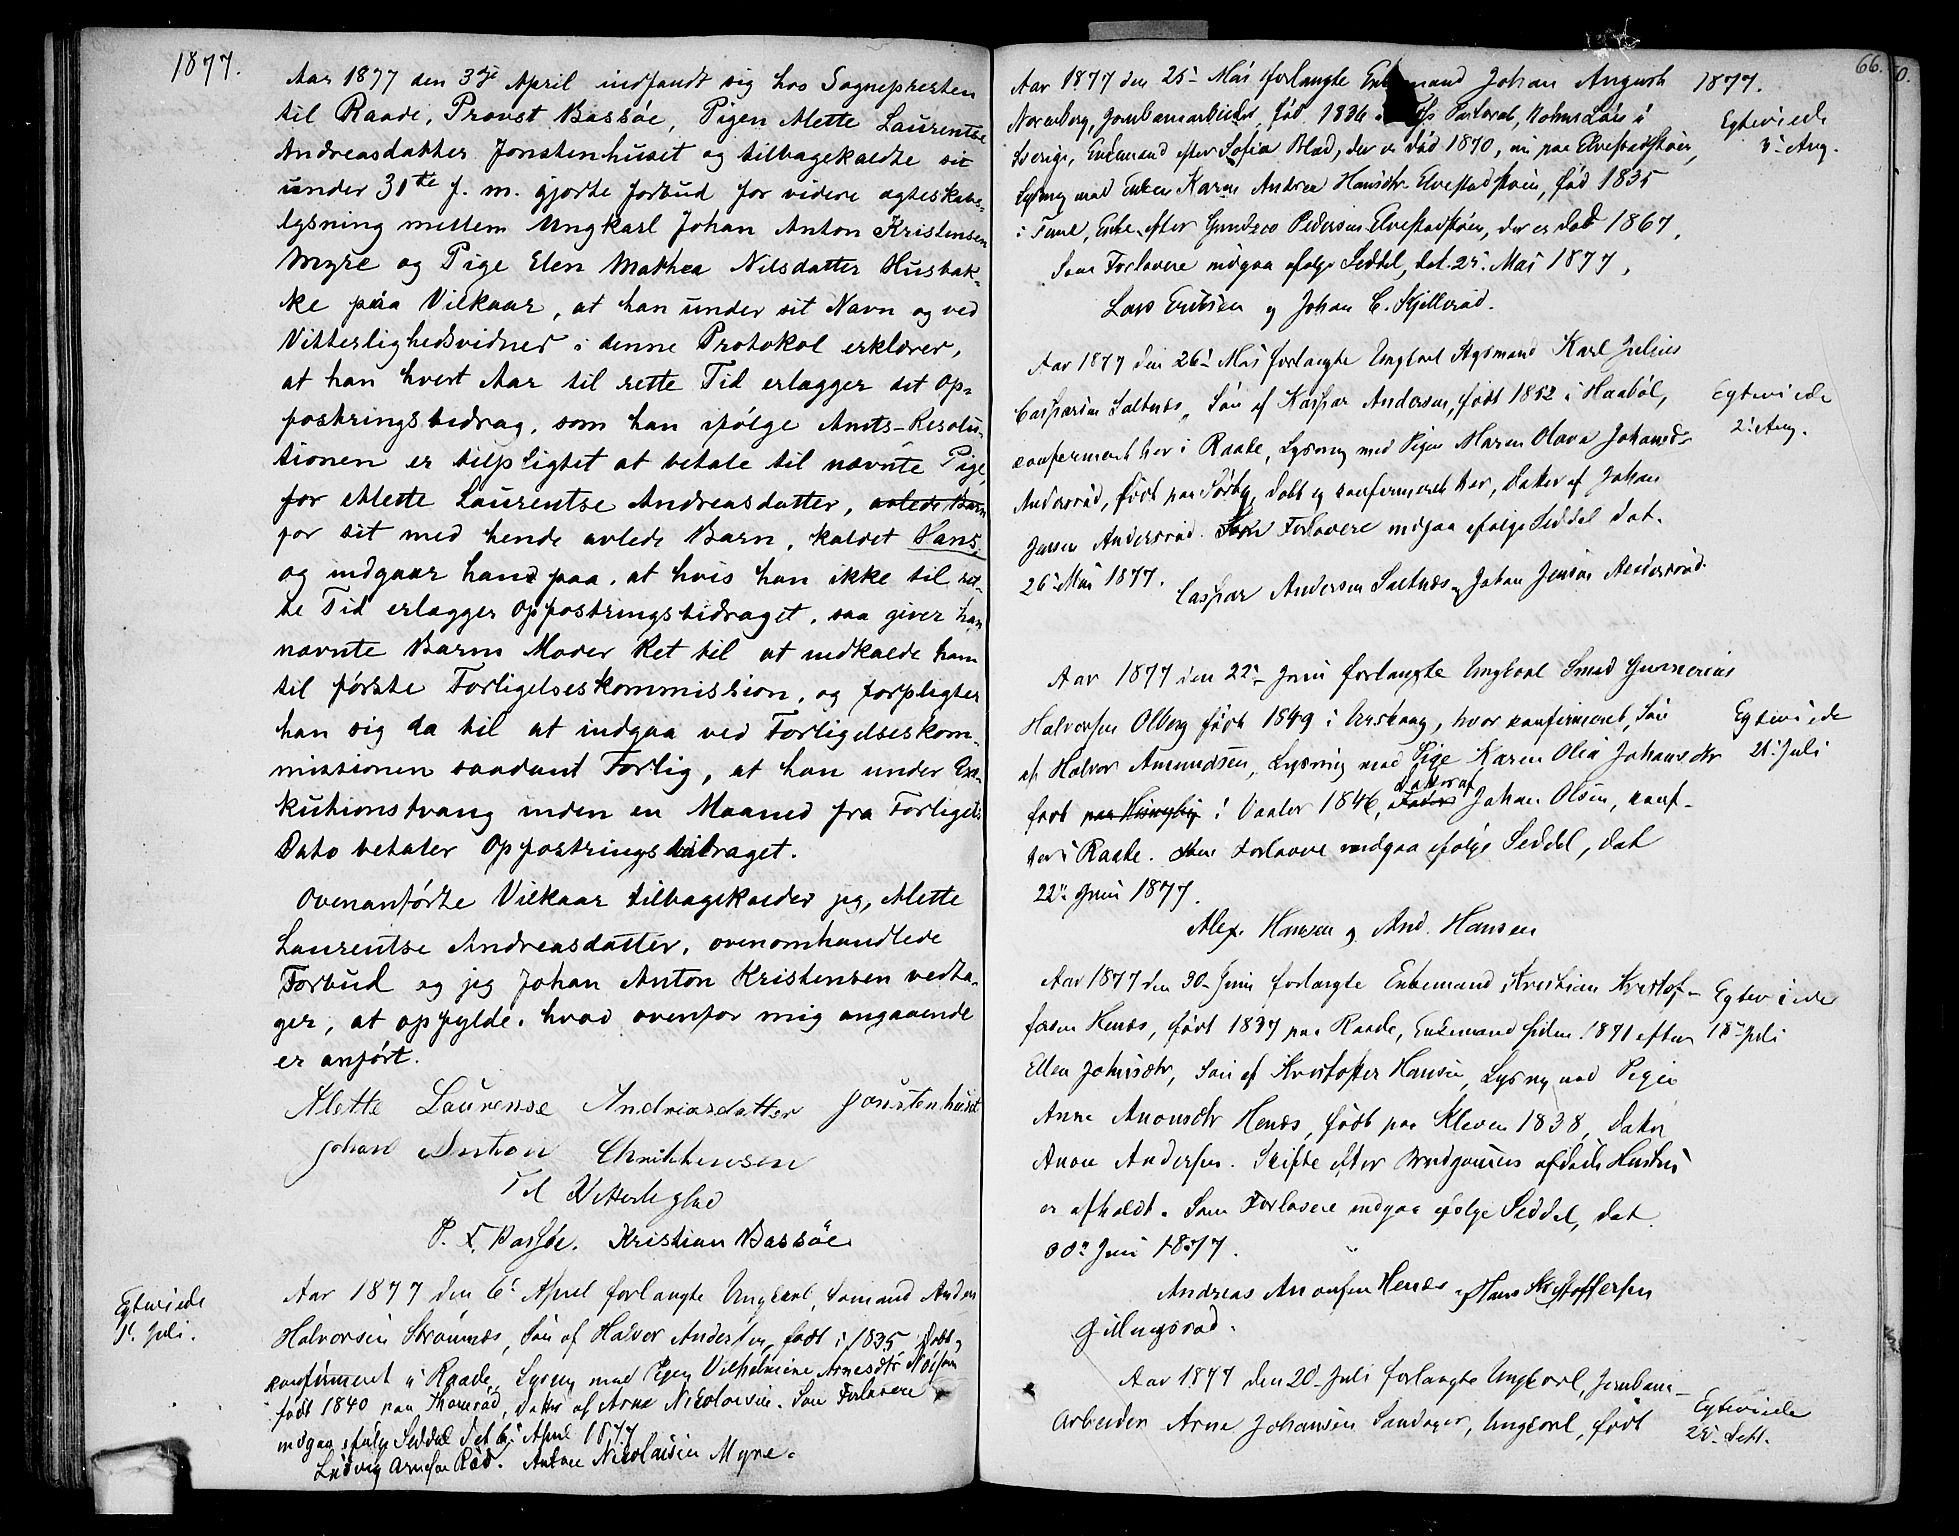 1877.
Aar 1877 den 3dje April indfandt sig hos Sognepresten
til Raade, Provst Bassøe, Pigen Mette Laurentse
Andreasdatter Jonstenhuset og tilbagekaldte sit
under 31te f. m. gjorte forbud for videre ægteskabs-
lysning mellem Ungkarl Johan Anton Kristensen
Myre og Pige Elen Mathea Nilsdatter Husbak-
ke paa Vilkaar, at han under sit Navn og ved
Vitterlighedsvidner i denne Protokol erklærer,
at han hvert Aar til rette Tid erlægger det op-
fostringsbidrag, som han ifølge Amts-Resolu-
tionen er tilpligtet at betale til nævnte Pige,
for Mette Laurentse Andreasdatter, avlede Barn
for sit med hende avlede Barn, kaldet Hans,
og indgaar han paa, at hvis han ikke til ret-
te Tid erlægger opfostringsbidraget, saa giver han
nævnte Barns Moder Ret til at indkalde ham
til første Forligelseskommission, og forpligter
han sig da til at indgaa ved Forligelseskom-
missionen saadant Forlig, at han under Exe-
kutionstvang inden en Maaned fra Forligets
Dato betaler Opfostringsbidraget.
Ovenanførte Vilkaar tilbagekalder jeg, Mette
Laurentse Andreasdatter, ovenomhandlede
Forbud og jeg Johan Anton Kristensen vedta-
ger, at opfylde, hvad ovenfor mig angaaende
er anført.
Mette Laurense Andreasdatter Jonstenhuset
Johan Anton Christensen
Til Vitterlighed
P. F. Bassøe. Kristian Bassøe
Egteviede
1. Juli.
Aar 1877 den 6. April forlangte Ungkarl, Sømand Anders
Halvorsen Strømnæs, Søn af Halvor Andersen, født i 1835, døbt og
confirmeret i Raade, Lysning med Pigen Vilhelmine Arnesdtr
født 1840 paa Thomrød, Datter af Arne Nicolaisen. Som Forlovere
indgaa ifølge Seddel dat. 6. April 1877
Ludvig Arnesen Rød. Anton Nicolaisen Myre.
66.
1877.
Aar 1877 den 25. Mai forlangte Enkemand Johan August
Norenberg, Jernbanearbeider, fød 1836 Pastorat, i
Sverige, Enkemand efter Sofia Blad, der er død 1870, nu paa Elvestadstøen,
Lysning med Enken Karen Andrea Hansdtr Elvestadstøen, fød 1835
i Enke efter Pedersen Elvestadstøen, der er død 1867.
Som Forlovere indgaa ifølge Seddel, dat. 25. Mai 1877,
Lars Eriksen og Johan C. Skjellerød.
Egteviede
3. Aug.
Aar 1877 den 26. Mai forlangte Ungkarl Karl Julius
Caspersen Saltnæs, Søn af Kaspar Andersen, født 1852 i Haabøl,
confirmeret her i Raade, Lysning med Pigen Maren Olava Johansdtr
Andersrød, født paa Sørby, døbt og confirmeret her, Datter af Johan
Jensen Andersrød. Som Forlovere indgaa ifølge Seddel dat.
26. Mai 1877.
Caspar Andersen Saltnæs, Johan Jensen Andersrød.
Egteviede
2. Aug.
Aar 1877 den 22. Juni forlangte Ungkarl Smed Gunnerius
Halvorsen Olberg født 1849 i Urskoug, hvor confirmeret, Søn
af Halvor Amundsen, Lysning med Pige Karen Olia Johansdtr
født i Vaaler 1846, Datter af Johan Olsen, conf-
her i Raade. Som Forlovere indgaa ifølge Seddel, dat
22. Juni 1877.
Alex. Hansen og And. Hansen
Egteviede
21. Juli
Aar 1877 den 30. Juni forlangte Enkemand Kristian Kristof-
fersen Henæs, født 1837 paa Raade, Enkemand siden 1871 efter
Ellen Johnsdtr, Søn af Kristoffer Hansen, Lysning med Pigen
Anne Anonsdtr Henæs, født paa Kleven 1838, Datter
Anon Andersen. Skifte efter Brudgommens afdøde Hustru
er afholdt. Som Forlovere indgaa ifølge Seddel, dat.
30. Juni 1877.
Andreas Anonsen Henæs, Hans Kristoffersen
Gillingsrød.
Egteviede
18. Juli
Aar 1877 den 20. Juli forlangte Ungkarl, Jernbane-
Arbeider Arne Johansen Sandager, Ungkarl, født
Egteviede
25. Sept.